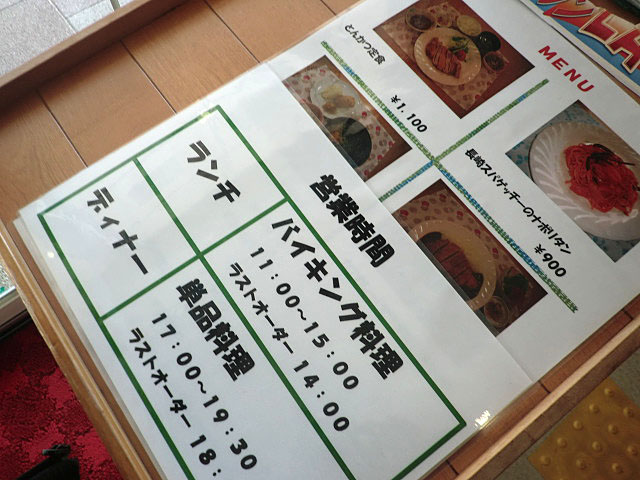 MENU
とんかつ定食
¥1,100
長崎スパゲッチーのナポリタン
¥900
営業時間
ランチ
バイキング料理
11:00~15:00
ラストオーダー 14:00
ディナー
単品料理
17:00~19:30
ラストオーダー 18: